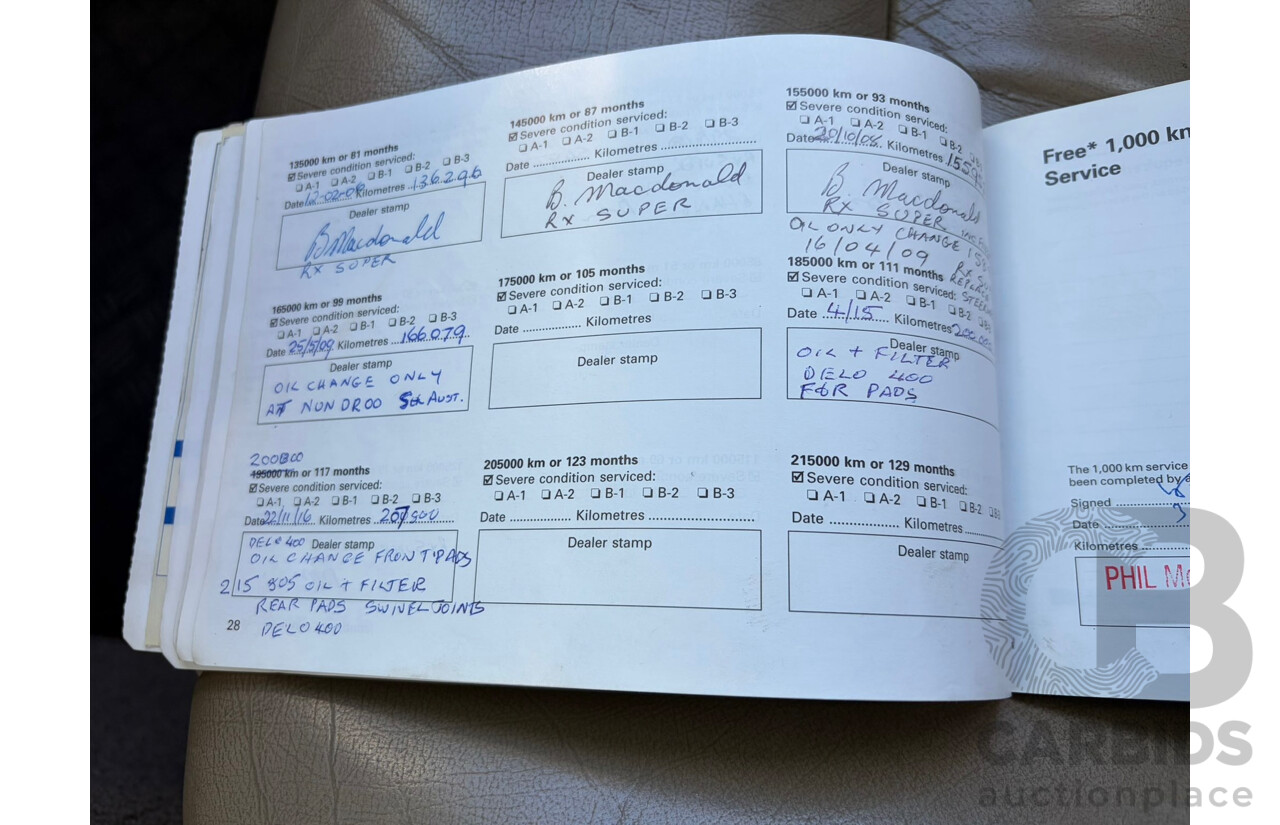 135000 km or 81 months
☑ Severe condition serviced:
❏ A-1 ❏ A-2 ❏ B-1 ❏ B-2 ❏ B-3
Date 12-02-08 Kilometres 136296
Dealer stamp
B Macdonald
RX SUPER
145000 km or 87 months
☑ Severe condition serviced:
❏ A-1 ❏ A-2 ❏ B-1 ❏ B-2 ❏ B-3
Date .............. Kilometres ..........................
Dealer stamp
B. Macdonald
RX SUPER
155000 km or 93 months
☑ Severe condition serviced:
❏ A-1 ❏ A-2 ❏ B-1 ❏ B-2
Date 20/10/08 Kilometres
Dealer stamp
B. Macdonald
RX SUPER
OIL ONLY CHANGE
16/04/09
165000 km or 99 months
☑ Severe condition serviced:
❏ A-1 ❏ A-2 ❏ B-1 ❏ B-2 ❏ B-3
Date 25/5/09 Kilometres 166079
Dealer stamp
OIL CHANGE ONLY
AT NUNDROO Sth AUST.
175000 km or 105 months
☑ Severe condition serviced:
❏ A-1 ❏ A-2 ❏ B-1 ❏ B-2 ❏ B-3
Date .................. Kilometres
Dealer stamp
185000 km or 111 months
☑ Severe condition serviced:
❏ A-1 ❏ A-2 ❏ B-1 ❏ B-2
Date 4/15 Kilometres
Dealer stamp
OIL + FILTER
DELO 400
F&R PADS
195000 km or 117 months
☑ Severe condition serviced:
❏ A-1 ❏ A-2 ❏ B-1 ❏ B-2 ❏ B-3
Date 22/11/16 Kilometres
DELO 400 Dealer stamp
OIL CHANGE FRONT PADS
215 805 OIL + FILTER
REAR PADS SWIVEL JOINTS
DELO 400
205000 km or 123 months
☑ Severe condition serviced:
❏ A-1 ❏ A-2 ❏ B-1 ❏ B-2 ❏ B-3
Date .................. Kilometres ..........................
Dealer stamp
215000 km or 129 months
☑ Severe condition serviced:
❏ A-1 ❏ A-2 ❏ B-1 ❏ B-2
Date .................. Kilometres ..............
Dealer stamp
28
Free* 1,000 km
Service
The 1,000 km service
been completed by
Signed
Date
Kilometres
PHIL
CB
CARBIDS
auctionplace